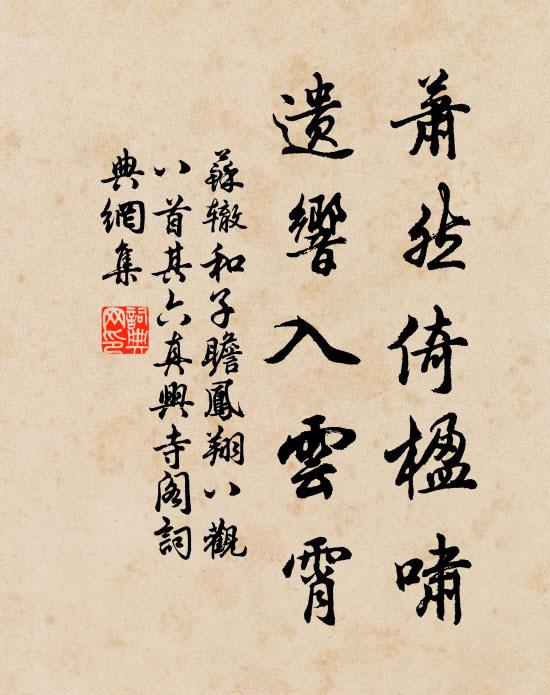 蕭然倚楹嘯
遺響入雲霄
蘇辙和子瞻鳳翔八觀
八首其六真興寺閣詞
典網集
詞典网印